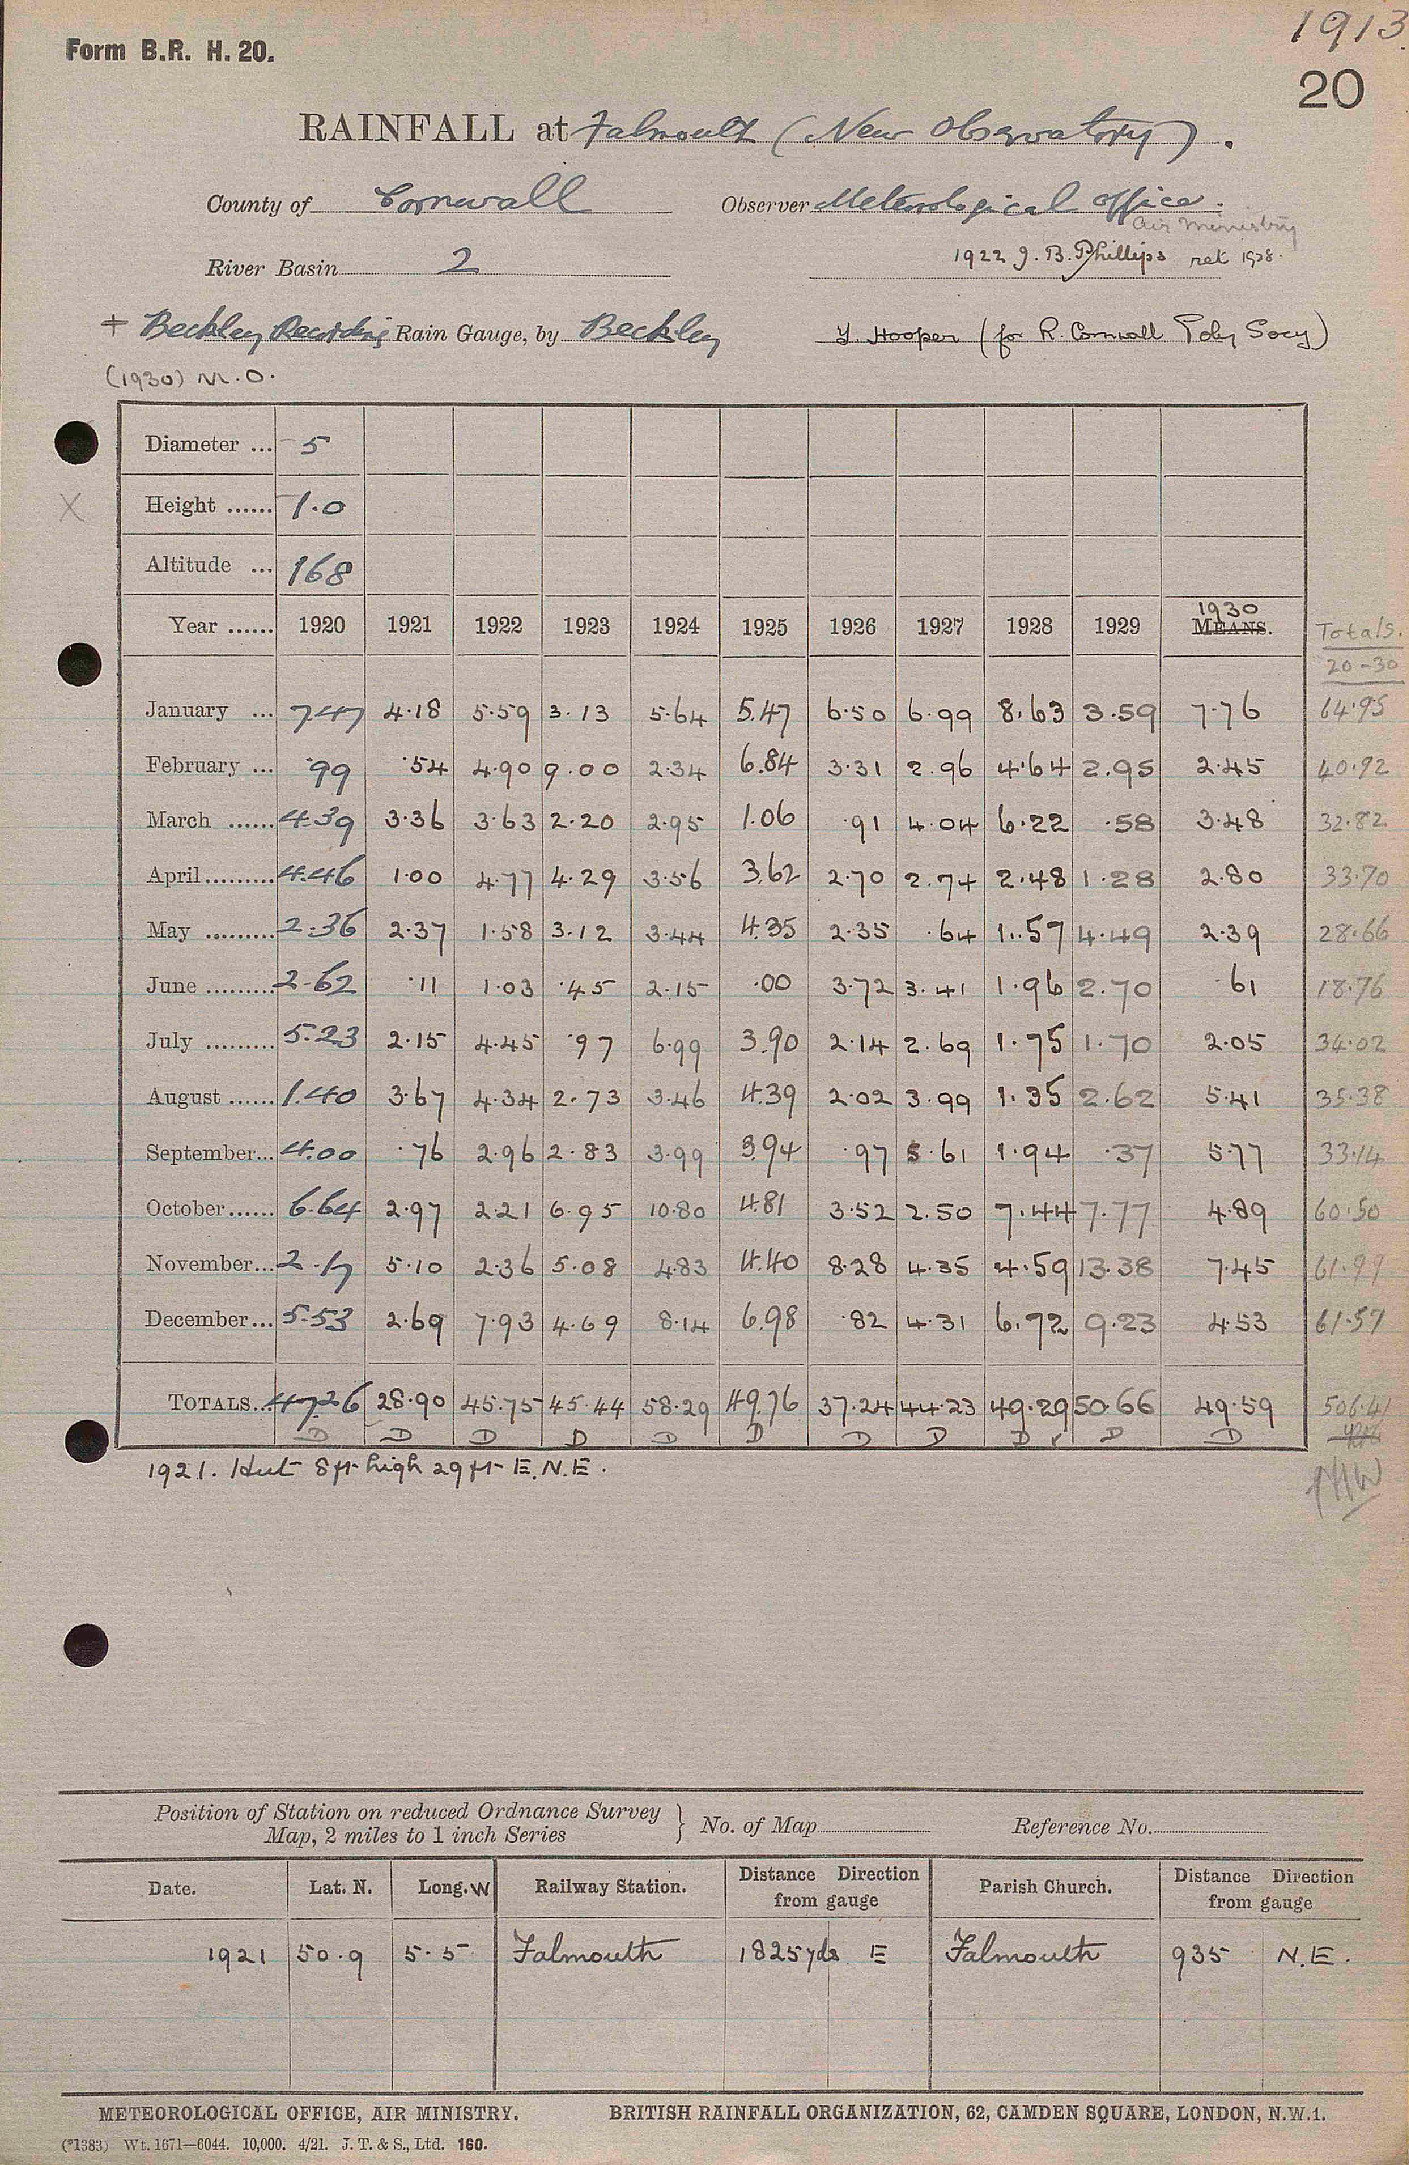 1913.
Form B.R. H. 20.
20
RAINFALL at Falmouth (New Observatory).
County of Cornwall Observer Meteorological Office.
Air Ministry
River Basin 2 1922 J. B. Phillips ret 1928.
+ Beckley Recording Rain Gauge, by Beckley Y. Hooper (for R. Cornwall Poly Socy)
(1930) M.O.
Diameter ... 5
X Height ...... 1.0
Altitude ... 168
Year ...... 1920 1921 1922 1923 1924 1925 1926 1927 1928 1929 1930 MEANS. Totals. 20-30
January ... 7.47 4.18 5.59 3.13 5.64 5.47 6.50 6.99 8.63 3.59 7.76 64.95
February ... .99 .54 4.90 9.00 2.34 6.84 3.31 2.96 4.64 2.95 2.45 40.92
March ...... 4.39 3.36 3.63 2.20 2.95 1.06 .91 4.04 6.22 .58 3.48 32.82
April ......... 4.46 1.00 4.77 4.29 3.56 3.62 2.70 2.74 2.48 1.28 2.80 33.70
May ......... 2.36 2.37 1.58 3.12 3.44 4.35 2.35 .64 1.57 4.49 2.39 28.66
June ......... 2.62 .11 1.03 .45 2.15 .00 3.72 3.41 1.96 2.70 .61 18.76
July ......... 5.23 2.15 4.45 .97 6.99 3.90 2.14 2.69 1.75 1.70 2.05 34.02
August ...... 1.40 3.67 4.34 2.73 3.46 4.39 2.02 3.99 1.35 2.62 5.41 35.38
September... 4.00 .76 2.96 2.83 3.99 3.94 .97 5.61 1.94 .37 5.77 33.14
October...... 6.64 2.97 2.21 6.95 10.80 4.81 3.52 2.50 7.44 7.77 4.89 60.50
November... 2.17 5.10 2.36 5.08 4.83 4.40 8.28 4.35 4.59 13.38 7.45 61.99
December... 5.53 2.69 7.93 4.69 8.14 6.98 .82 4.31 6.72 9.23 4.53 61.57
TOTALS... 47.26 28.90 45.75 45.44 58.29 49.76 37.24 44.23 49.29 50.66 49.59 506.41
D D D D D D D D D ✓ D D
1921. Hut 8 ft high 29 ft E.N.E.
Position of Station on reduced Ordnance Survey Map, 2 miles to 1 inch Series } No. of Map Reference No.
Date. Lat. N. Long. W Railway Station. Distance Direction from gauge Parish Church. Distance Direction from gauge
1921 50.9 5.5 Falmouth 1825 yds E Falmouth 935 N.E.
METEOROLOGICAL OFFICE, AIR MINISTRY. BRITISH RAINFALL ORGANIZATION, 62, CAMDEN SQUARE, LONDON, N.W.1.
(*1383) Wt. 1671—6044. 10,000. 4/21. J. T. & S., Ltd. 160.